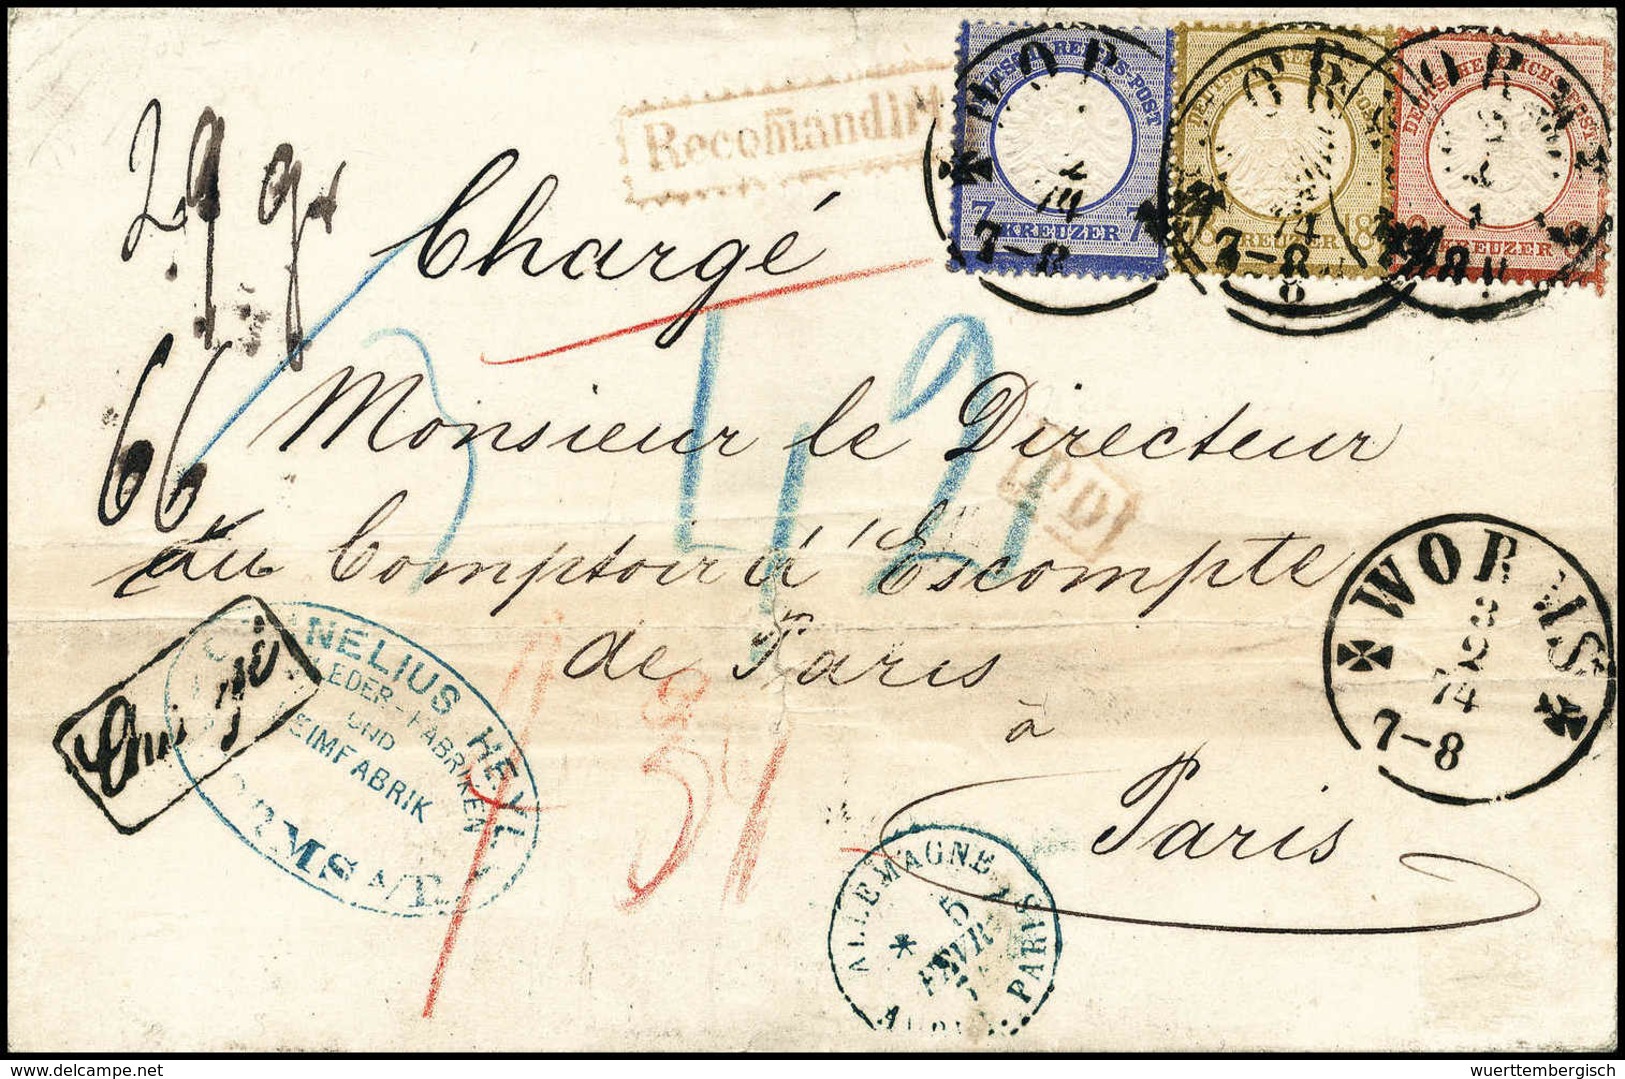 29 gr
66
Recomandirt
Chargé
DEUTSCHE REICHS-POST
7 KREUZER 7
DEUTSCHE REICHS-POST
18 KREUZER 18
DEUTSCHE REICHS-POST
9 KREUZER 9
WORMS
2
74
7-8
74
7-8
Monsieur le Directeur
P.D.
du Comptoir d'Escompte
de Paris
à
Paris
Chargé
CORNELIUS HEYL
LEDER-FABRIKEN
UND
LEIMFABRIK
WORMS A/R.
WORMS
3
2
74
7-8
ALLEMAGNE
5
FEVR
PARIS
wuerttembergisch